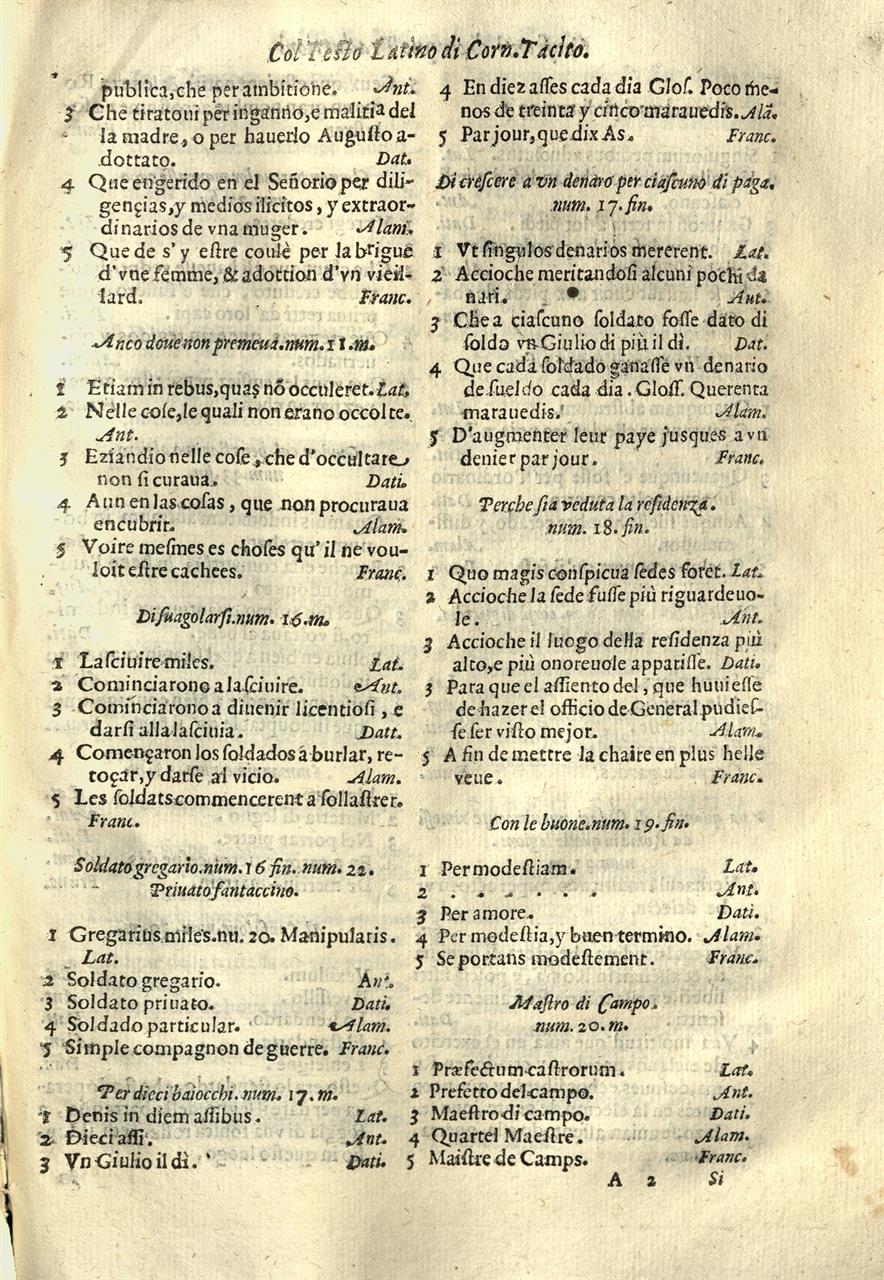 Col Testo Latino di Corn. Tacito.
publica, che per ambitione. Ant.
3 Che tiratoui per inganno, e malitia del
la madre, o per hauerlo Augusto a-
dottato. Dat.
4 Que engerido en el Señorio per dili-
gençias, y medios ilicitos, y extraor-
dinarios de vna muger. Alam.
5 Que de s'y estre coulè per la brigue
d'vne femme, & adottion d'vn vieil-
lard. Franc.
Anco doue non premeua. num. 11. m.
1 Etiam in rebus, quas nõ occuleret. Lat.
2 Nelle cose, le quali non erano occolte.
Ant.
3 Eziandio nelle cose, che d'occultare
non si curaua. Dati.
4 Aun en las cosas, que non procuraua
encubrir. Alam.
5 Voire mesmes es choses qu'il ne vou-
loit estre cachees. Franc.
Di suagolarsi. num. 16. m.
1 Lasciuire miles. Lat.
2 Cominciarono a lasciuire. Ant.
3 Cominciarono a diuenir licentiosi, e
darsi alla lasciuia. Datt.
4 Començaron los soldados á burlar, re-
toçar, y darse al vicio. Alam.
5 Les soldats commencerent a sollastrer.
Franc.
Soldato gregario. num. 16 fin. num. 22.
Priuato fantaccino.
1 Gregarius miles. nu. 20. Manipularis.
Lat.
2 Soldato gregario. Ant.
3 Soldato priuato. Dati.
4 Soldado particular. Alam.
5 Simple compagnon de guerre. Franc.
Per dieci baiocchi. num. 17. m.
1 Denis in diem assibus. Lat.
2 Dieci assi. Ant.
3 Vn Giulio il dì. Dati.
4 En diez asses cada dia Glos. Poco me-
nos de treinta y cinco marauedis. Alã.
5 Par jour, que dix As. Franc.
Di crescere a vn denaro per ciascuno di paga.
num. 17. fin.
1 Vt singulos denarios mererent. Lat.
2 Accioche meritandosi alcuni pochi da
nari. Ant.
3 Che a ciascuno soldato fosse dato di
soldo vn Giulio di più il dì. Dat.
4 Que cada soldado ganasse vn denario
de sueldo cada dia. Gloss. Querenta
marauedis. Alam.
5 D'augmenter leur paye jusques a vn
denier par jour. Franc.
Perche sia veduta la residenza.
num. 18. fin.
1 Quo magis conspicua sedes foret. Lat.
2 Accioche la sede fusse più riguardeuo-
le. Ant.
3 Accioche il luogo della residenza più
alto, e più onoreuole apparisse. Dati.
3 Para que el assiento del, que huuiesse
de hazer el officio de General pudies-
se ser visto mejor. Alam.
5 A fin de mettre la chaire en plus helle
veue. Franc.
Con le buone. num. 19. fin.
1 Per modestiam. Lat.
2 . . . . . . Ant.
3 Per amore. Dati.
4 Per modestia, y buen termino. Alam.
5 Se portans modestement. Franc.
Mastro di Campo.
num. 20. m.
1 Præfectum castrorum. Lat.
2 Prefetto del campo. Ant.
3 Maestro di campo. Dati.
4 Quartel Maestre. Alam.
5 Maistre de Camps. Franc.
A 2 Si